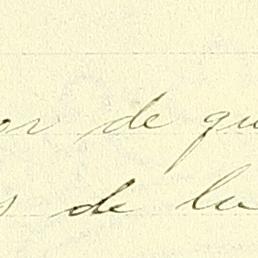 or de qu
s de la